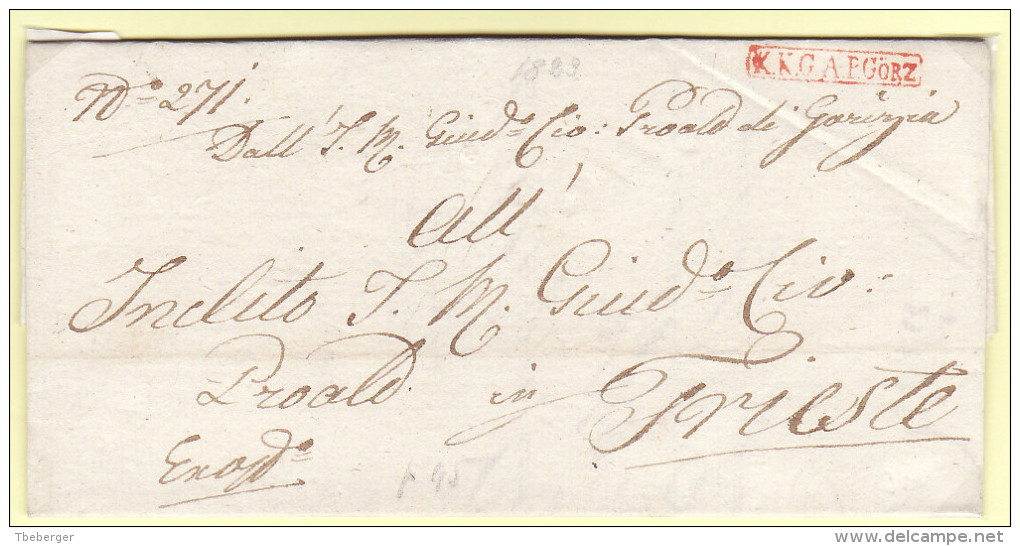 1833
K.K.G.A.P. GÖRZ
No. 271.
Dall' I. R. Giudo. Civ: Proale di Gorizia
All'
Inclito I. R. Giudo. Civ:
Proale in Trieste
Exoffo.
Tbeberger